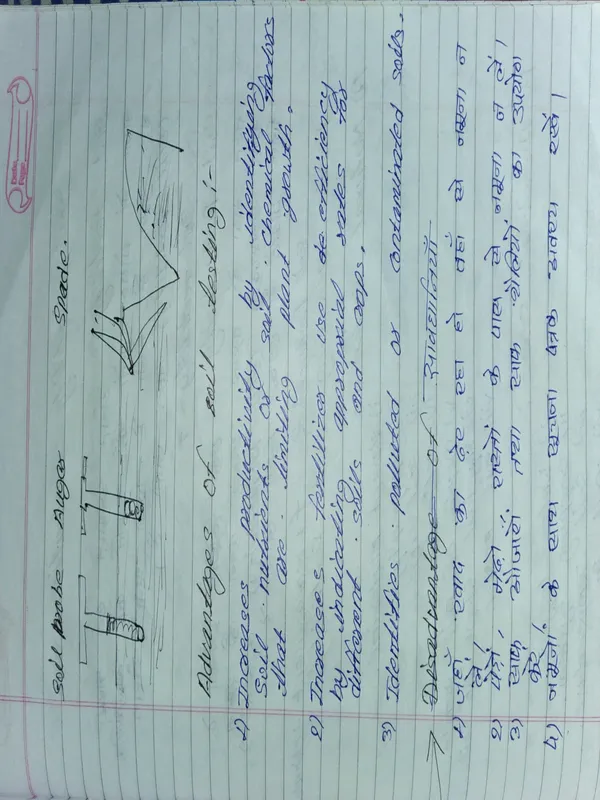 Soil probe Auger Spade.
Advantages of soil testing :-
1) Increases productivity by identifying
soil nutrients or soil chemical factors
that are limiting plant growth.
2) Increases fertilizer use efficiency
by indicating appropriat rates for
different soils and crops.
3) Identifies polluted or contaminated soils.
Disadvantage of सावधानियाँ
1) जहाँ खाद का ढेर रहा हो वहाँ से नमूना न
लें।
2) पेड़ों, मेढ़ों, रास्तों के पास से नमूना न लें।
3) साफ औजारों तथा साफ थैलियों का उपयोग
करें
4) नमूनों के साथ सूचना पत्रक अवश्य रखें।